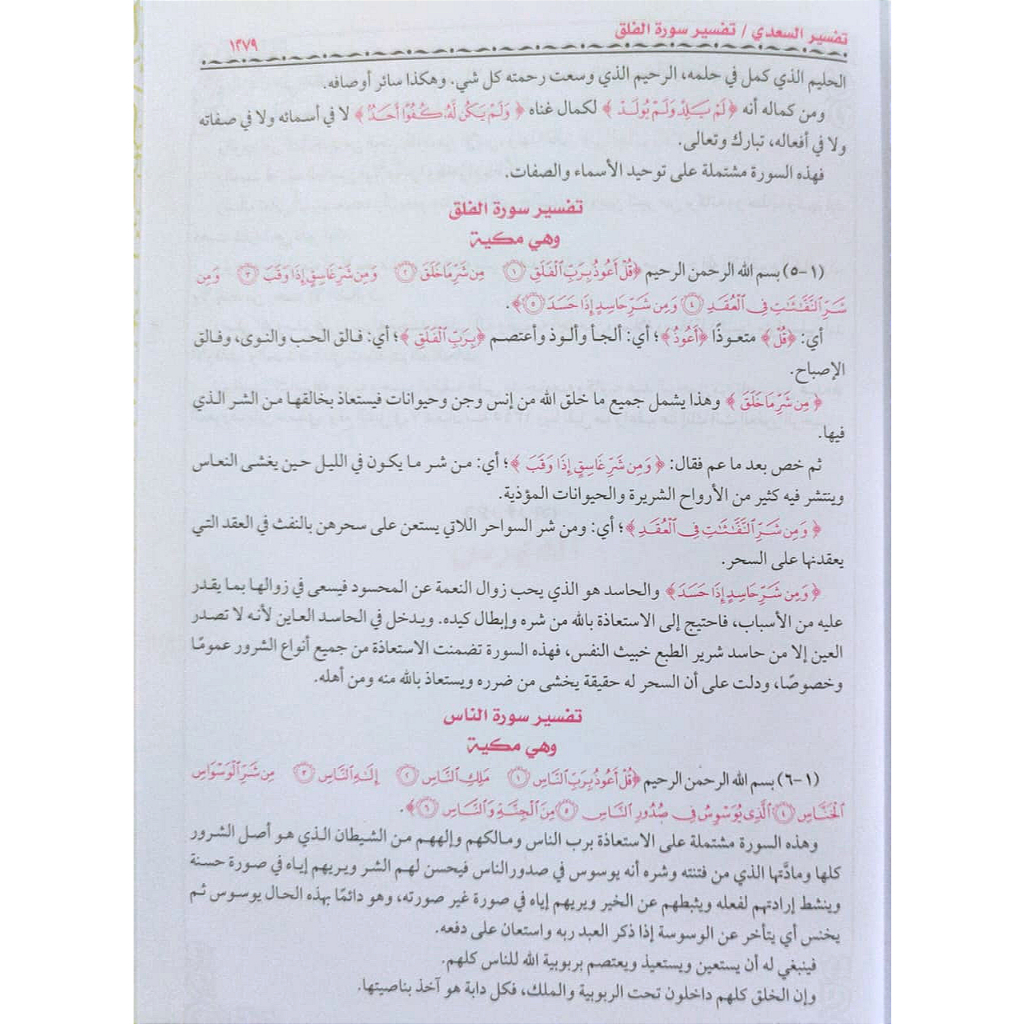 تفسير السعدي / تفسير سورة الفلق
١٢٧٩
الحليم الذي كمل في حلمه، الرحيم الذي وسعت رحمته كل شي. وهكذا سائر أوصافه.
ومن كماله أنه ﴿لَمْ يَلِدْ وَلَمْ يُولَدْ﴾ لكمال غناه ﴿وَلَمْ يَكُن لَّهُۥ كُفُوًا أَحَدٌۢ﴾ لا في أسمائه ولا في صفاته
ولا في أفعاله، تبارك وتعالى.
فهذه السورة مشتملة على توحيد الأسماء والصفات.
تفسير سورة الفلق
وهي مكية
(١-٥) بسم الله الرحمن الرحيم ﴿قُلْ أَعُوذُ بِرَبِّ ٱلْفَلَقِ ١ مِن شَرِّ مَا خَلَقَ ٢ وَمِن شَرِّ غَاسِقٍ إِذَا وَقَبَ ٣ وَمِن
شَرِّ ٱلنَّفَّٰثَٰتِ فِى ٱلْعُقَدِ ٤ وَمِن شَرِّ حَاسِدٍ إِذَا حَسَدَ ٥﴾.
أي: ﴿قُلْ﴾ متعوذًا ﴿أَعُوذُ﴾؛ أي: ألجأ وألوذ وأعتصم ﴿بِرَبِّ ٱلْفَلَقِ﴾؛ أي: فالق الحب والنوى، وفالق
الإصباح.
﴿مِن شَرِّ مَا خَلَقَ﴾ وهذا يشمل جميع ما خلق الله من إنس وجن وحيوانات فيستعاذ بخالقها من الشر الذي
فيها.
ثم خص بعد ما عم فقال: ﴿وَمِن شَرِّ غَاسِقٍ إِذَا وَقَبَ﴾؛ أي: من شر ما يكون في الليل حين يغشى النعاس
وينتشر فيه كثير من الأرواح الشريرة والحيوانات المؤذية.
﴿وَمِن شَرِّ ٱلنَّفَّٰثَٰتِ فِى ٱلْعُقَدِ﴾؛ أي: ومن شر السواحر اللاتي يستعن على سحرهن بالنفث في العقد التي
يعقدنها على السحر.
﴿وَمِن شَرِّ حَاسِدٍ إِذَا حَسَدَ﴾ والحاسد هو الذي يحب زوال النعمة عن المحسود فيسعى في زوالها بما يقدر
عليه من الأسباب، فاحتيج إلى الاستعاذة بالله من شره وإبطال كيده. ويدخل في الحاسد العاين لأنه لا تصدر
العين إلا من حاسد شرير الطبع خبيث النفس، فهذه السورة تضمنت الاستعاذة من جميع أنواع الشرور عمومًا
وخصوصًا، ودلت على أن السحر له حقيقة يخشى من ضرره ويستعاذ بالله منه ومن أهله.
تفسير سورة الناس
وهي مكية
(١-٦) بسم الله الرحمن الرحيم ﴿قُلْ أَعُوذُ بِرَبِّ ٱلنَّاسِ ١ مَلِكِ ٱلنَّاسِ ٢ إِلَٰهِ ٱلنَّاسِ ٣ مِن شَرِّ ٱلْوَسْوَاسِ
ٱلْخَنَّاسِ ٤ ٱلَّذِى يُوَسْوِسُ فِى صُدُورِ ٱلنَّاسِ ٥ مِنَ ٱلْجِنَّةِ وَٱلنَّاسِ ٦﴾.
وهذه السورة مشتملة على الاستعاذة برب الناس ومالكهم وإلههم من الشيطان الذي هو أصل الشرور
كلها ومادَّتها الذي من فتنته وشره أنه يوسوس في صدور الناس فيحسن لهم الشر ويريهم إياه في صورة حسنة
وينشط إرادتهم لفعله ويثبطهم عن الخير ويريهم إياه في صورة غير صورته، وهو دائمًا بهذه الحال يوسوس ثم
يخنس أي يتأخر عن الوسوسة إذا ذكر العبد ربه واستعان على دفعه.
فينبغي له أن يستعين ويستعيذ ويعتصم بربوبية الله للناس كلهم.
وإن الخلق كلهم داخلون تحت الربوبية والملك، فكل دابة هو آخذ بناصيتها.